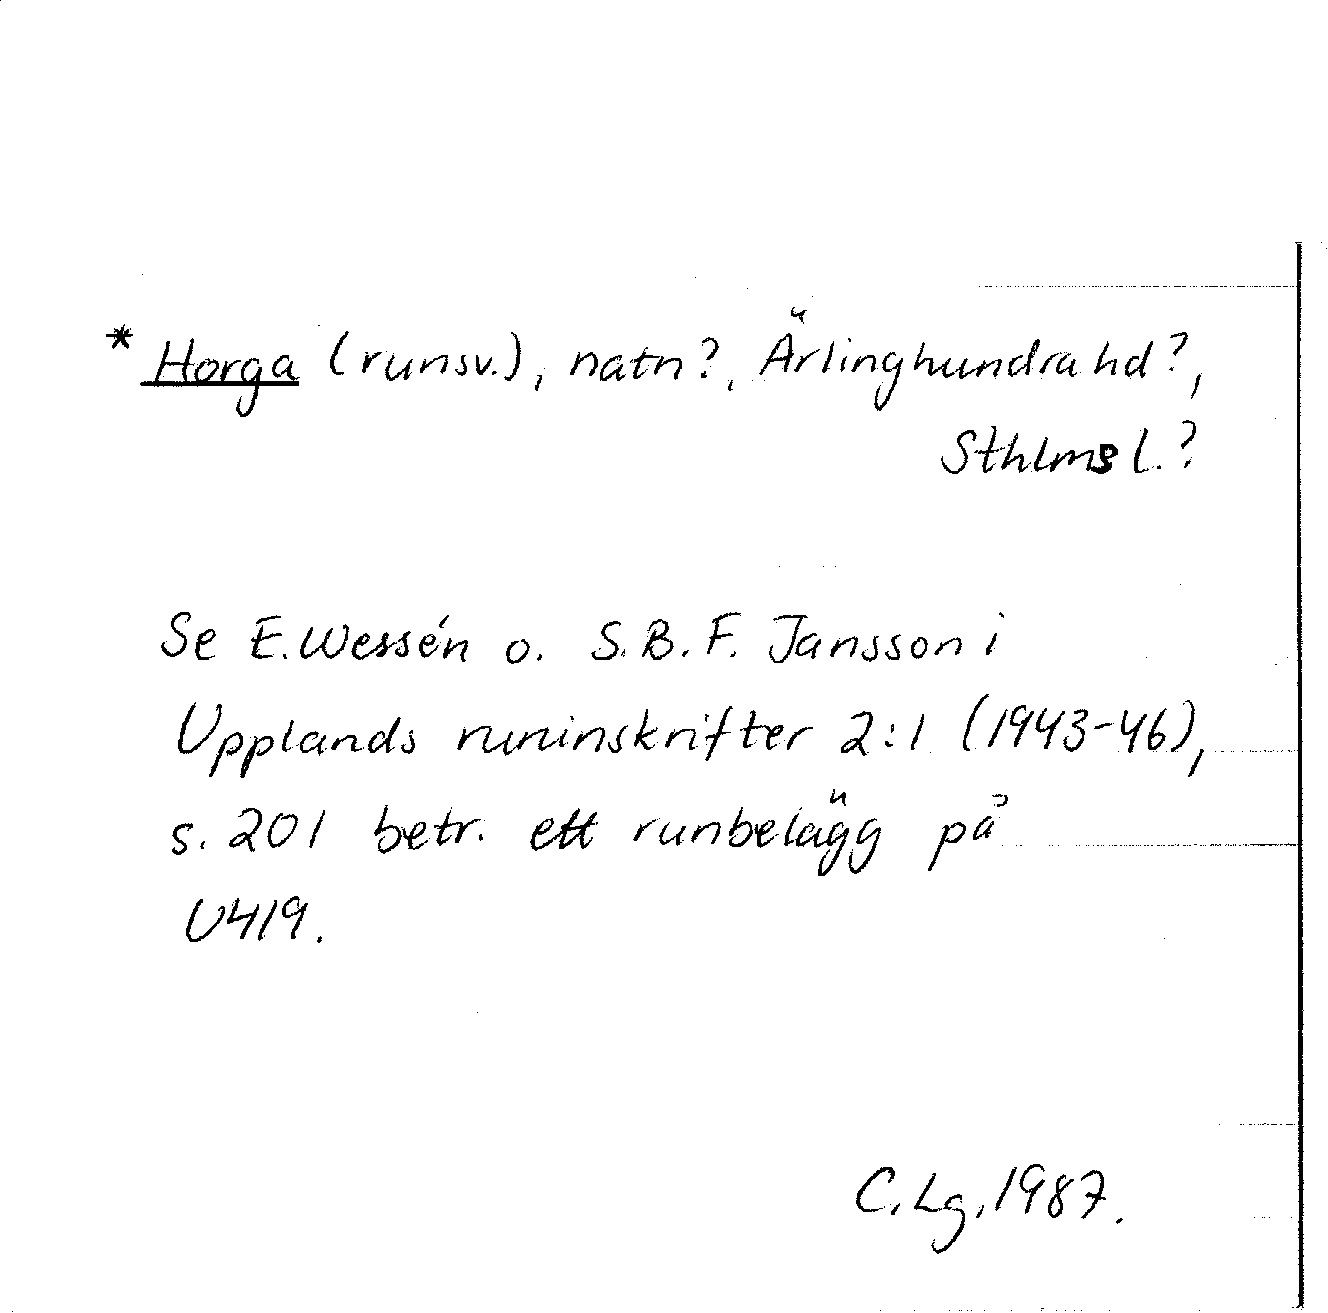 * Horga (runsv.), natn?, Ärlinghundra hd?,
Sthlms l.?
Se E. Wessén o. S.B.F. Jansson i
Upplands runinskrifter 2:1 (1943-46),
s. 201 betr. ett runbelägg på
U419.
C. Lg, 1987.